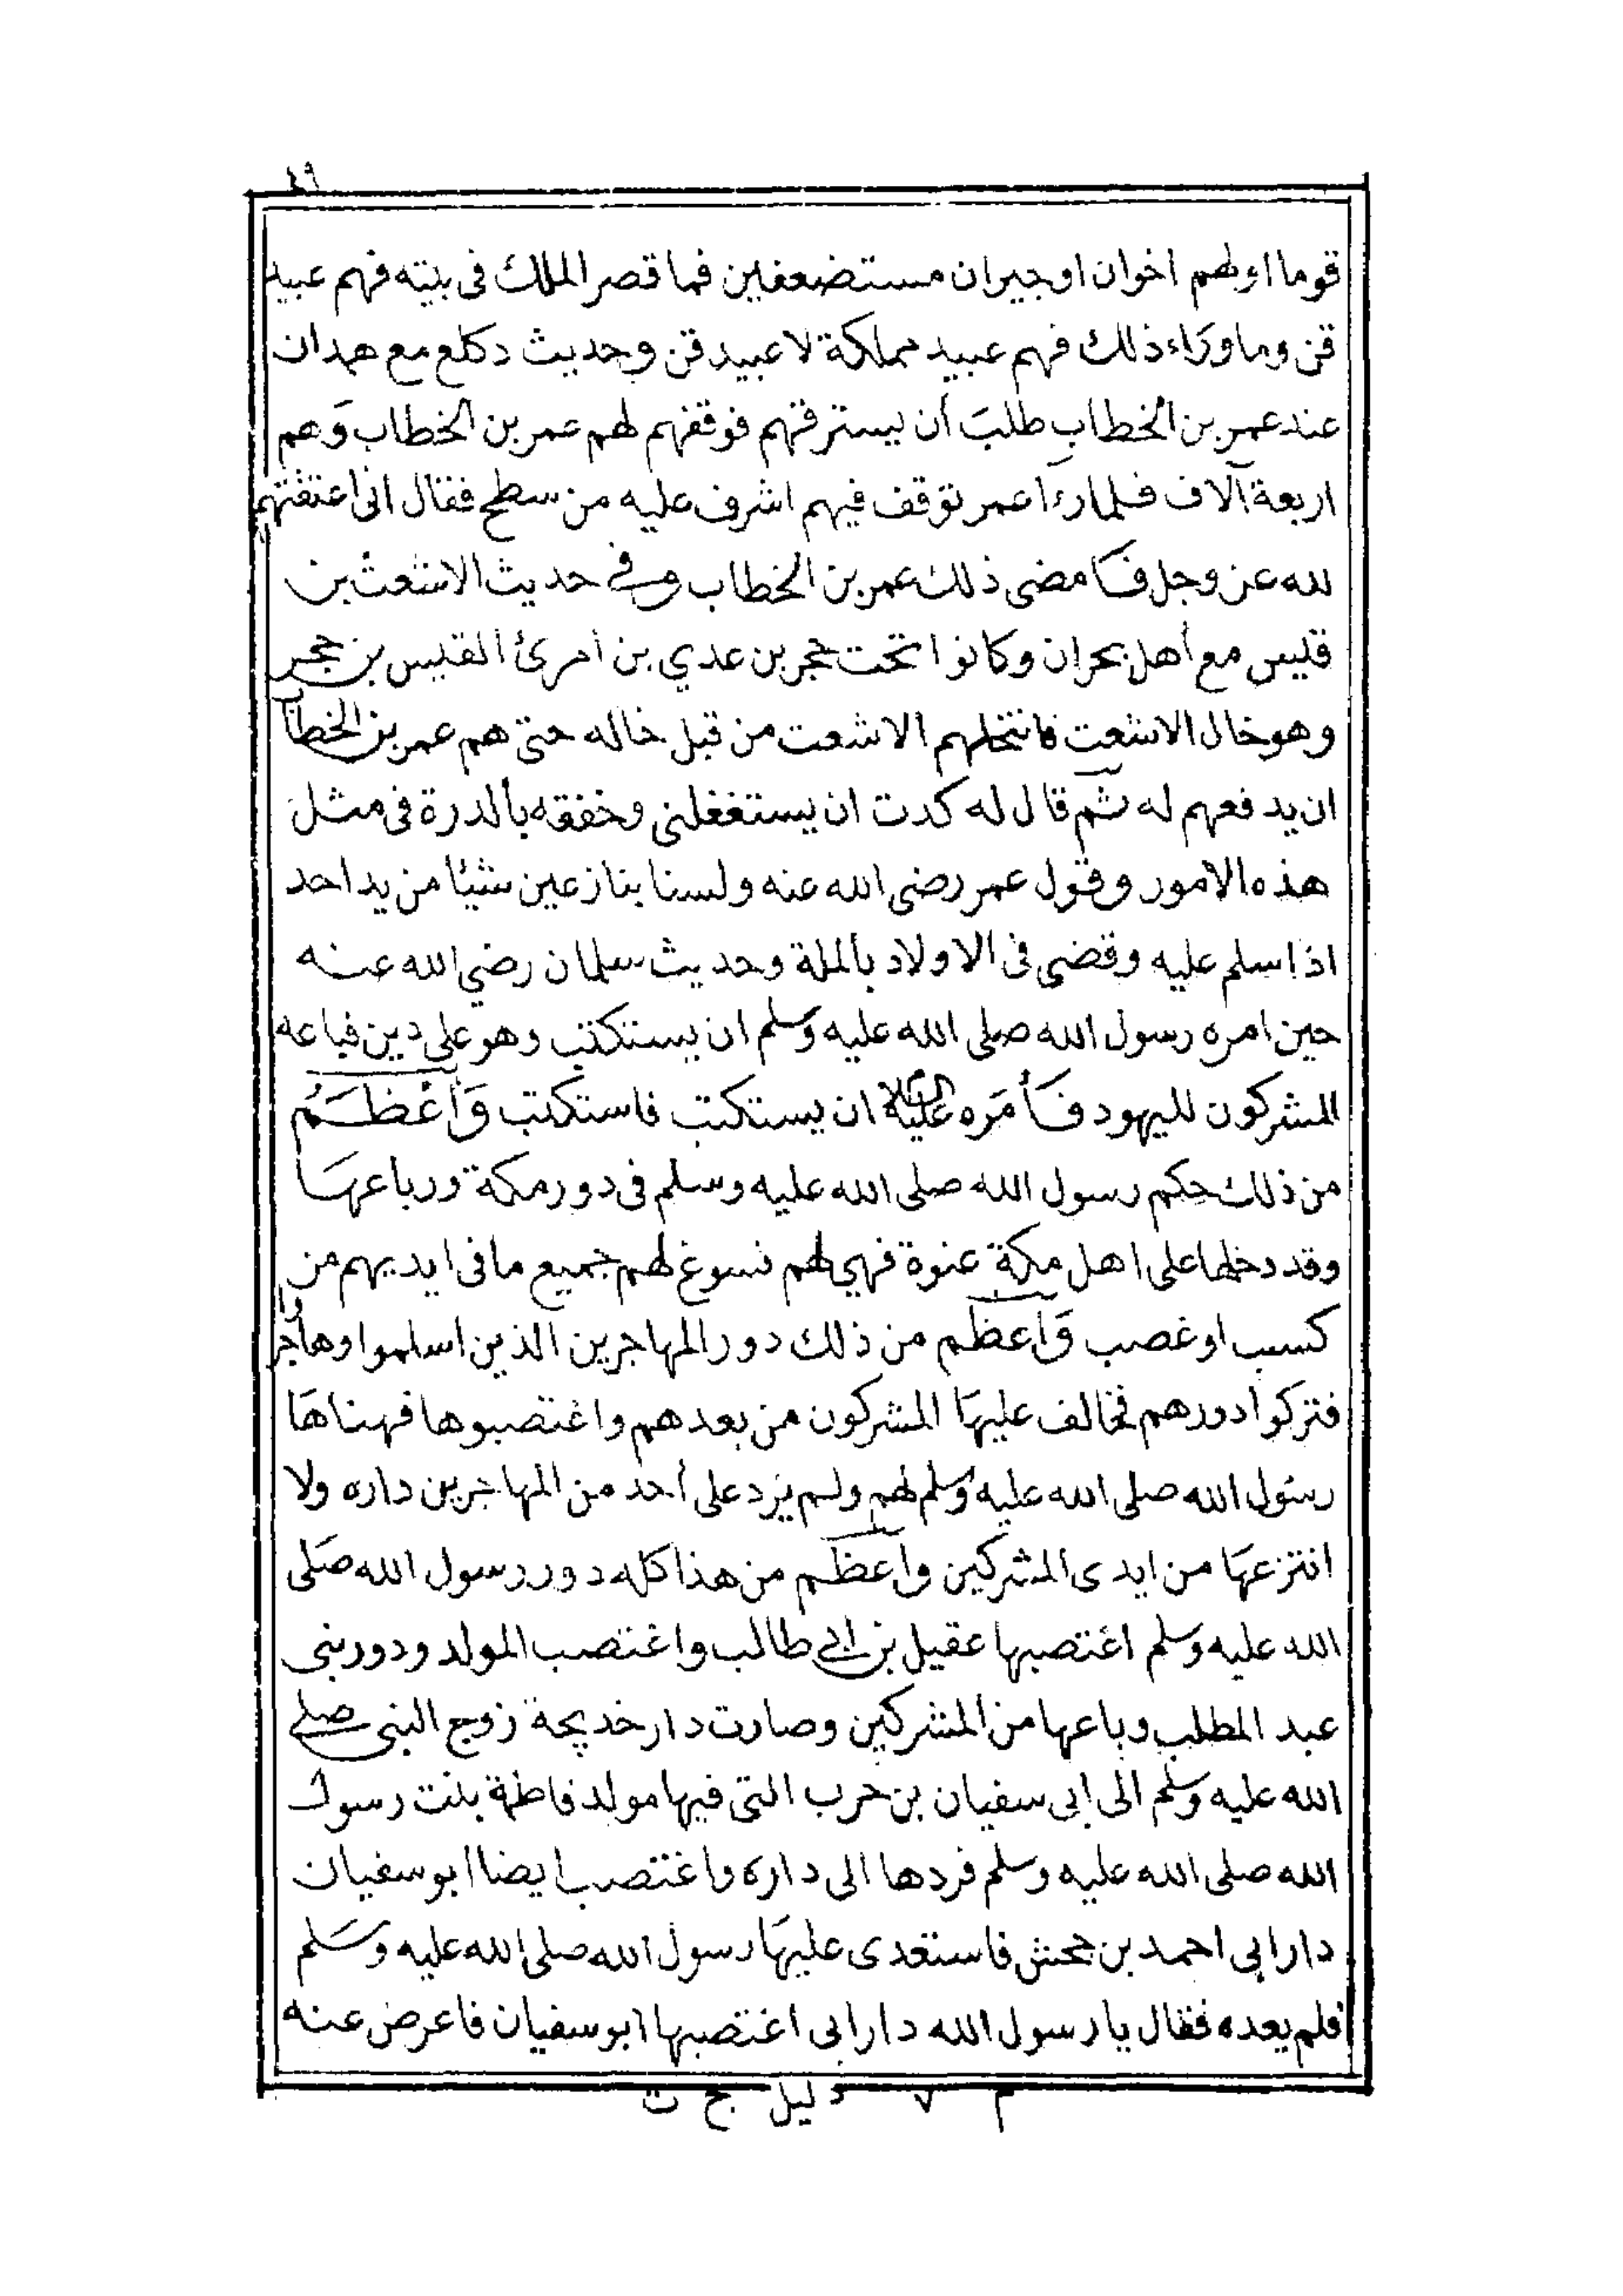 ٤٩
قوما اولهم اخوان اوجيران مستضعفين فما قصر الملك فى بيته فهم عبيد
قن وما وراء ذلك فهم عبيد مملكة لا عبيد قن وحديث دكلع مع همدان
عند عمر بن الخطاب طلبَ أن يسترقهم فوقفهم لهم عمر بن الخطاب وَهم
اربعة آلاف فلما رءا عمر توقف فيهم اشرف عليه من سطح فقال انى اعتقتهم
لله عز وجل فَأمضى ذلك عمر بن الخطاب وفي حديث الاشعث بن
قليس مع أهل بحران وكانوا تحت حجر بن عدي بن أمرئ القيس بن حجر
وهو خال الاشعت فانتحلهم الاشعت من قبل خاله حتى هم عمر بن الخطاب
ان يدفعهم له ثم قال له كدت ان يستغفلنى وخفقه بالدرة فى مثل
هذه الامور وقول عمر رضى الله عنه ولسنا بنازعين شيئا من يد احد
اذا اسلم عليه وقضى فى الاولاد بالملة وحديث سلمان رضي الله عنه
حين امره رسول الله صلى الله عليه وَسلم ان يستكتب وهو على دين فباعه
المشركون لليهود فَأمَره عليه السلام ان يستكتب فاستكتب وَأعْظَمُ
من ذلك حكم رسول الله صلى الله عليه وسلم فى دور مكة ورباعهَا
وقد دخلها على اهل مكة عنوة فهي لهم نسوغ لهم جميع ما فى ايديهم من
كسب او غصب وَأعظم من ذلك دور المهاجرين الذين اسلموا وهاجروا
فتركوا دورهم فخالف عليهَا المشركون من بعدهم واغتصبوها فهناهَا
رسُول الله صلى الله عليه وَسلم لهم ولم يرد على أحد من المهاجرين داره ولا
انتزعهَا من ايدى المشركين وأعظم من هذا كله دور رسول الله صَلى
الله عليه وَسلم اغتصبها عقيل بن ابي طالب واغتصب المولد ودور بنى
عبد المطلب وباعها من المشركين وصارت دار خديجة زوج النبى صلى
الله عليه وَسلم الى ابى سفيان بن حرب التى فيها مولد فاطمة بنت رسول
الله صلى الله عليه وسلم فردها الى داره واغتصب ايضا ابو سفيان
دار ابى احمد بن جحش فاستعدى عليهَا رسول الله صلى الله عليه وَسَلم
فلم يعده فقال يا رسول الله دار ابى اغتصبها ابو سفيان فاعرض عنه
م ٧ دليل ج ت